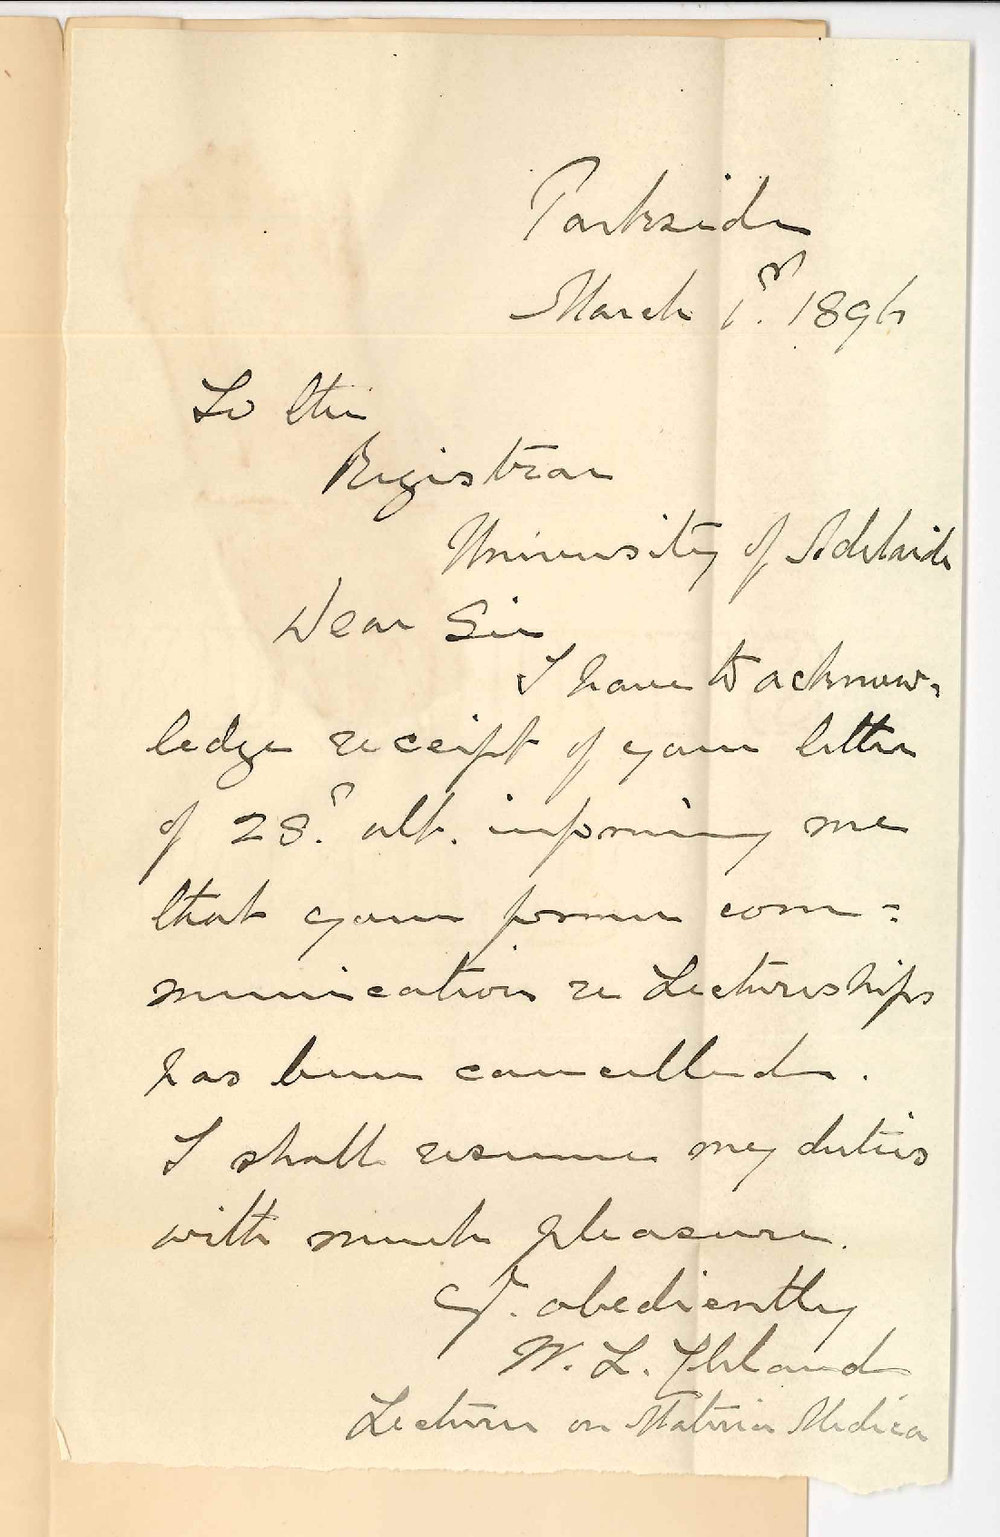 Parkside
March 1st. 1896
To the
Registrar
University of Adelaide
Dear Sir
I have to acknow-
ledge receipt of your letter
of 28. ult. informing me
that your former com=
munication re Lectureships
has been cancelled.
I shall resume my duties
with much pleasure.
Yr. obediently
W. L. Cleland
Lecturer on Materia Medica